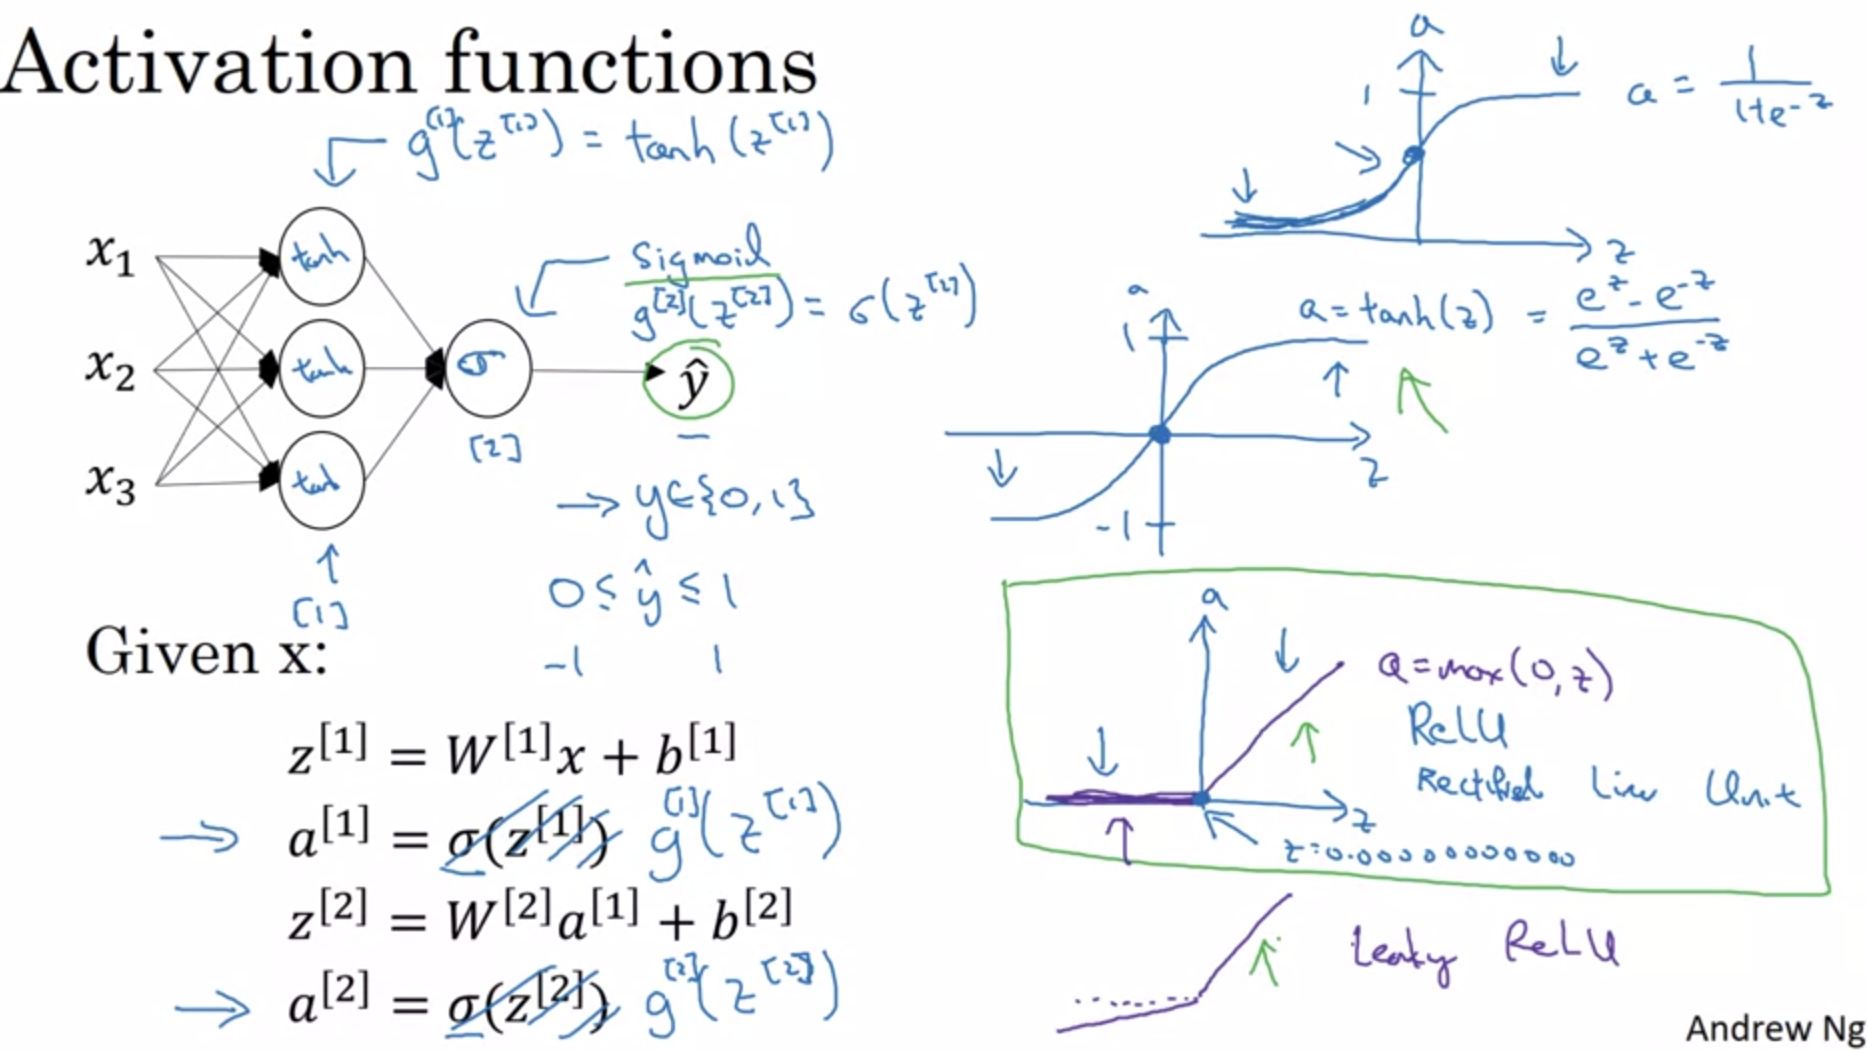 Activation functions
g^[1](z^[1]) = tanh(z^[1])
x₁
x₂
x₃
tanh
tanh
tanh
[1]
Sigmoid
g^[2](z^[2]) = σ(z^[2])
σ
[2]
ŷ
→ y∈{0,1}
0 ≤ ŷ ≤ 1
-1 1
Given x:
z^[1] = W^[1]x + b^[1]
⇒ a^[1] = σ(z^[1]) g^[1](z^[1])
z^[2] = W^[2]a^[1] + b^[2]
⇒ a^[2] = σ(z^[2]) g^[2](z^[2])
a
1
a = 1/(1+e^-z)
z
a
1
a = tanh(z) = (e^z - e^-z)/(e^z + e^-z)
z
-1
a
a = max(0,z)
ReLU
Rectified Linear Unit
z
z=0.00000000000
Leaky ReLU
Andrew Ng